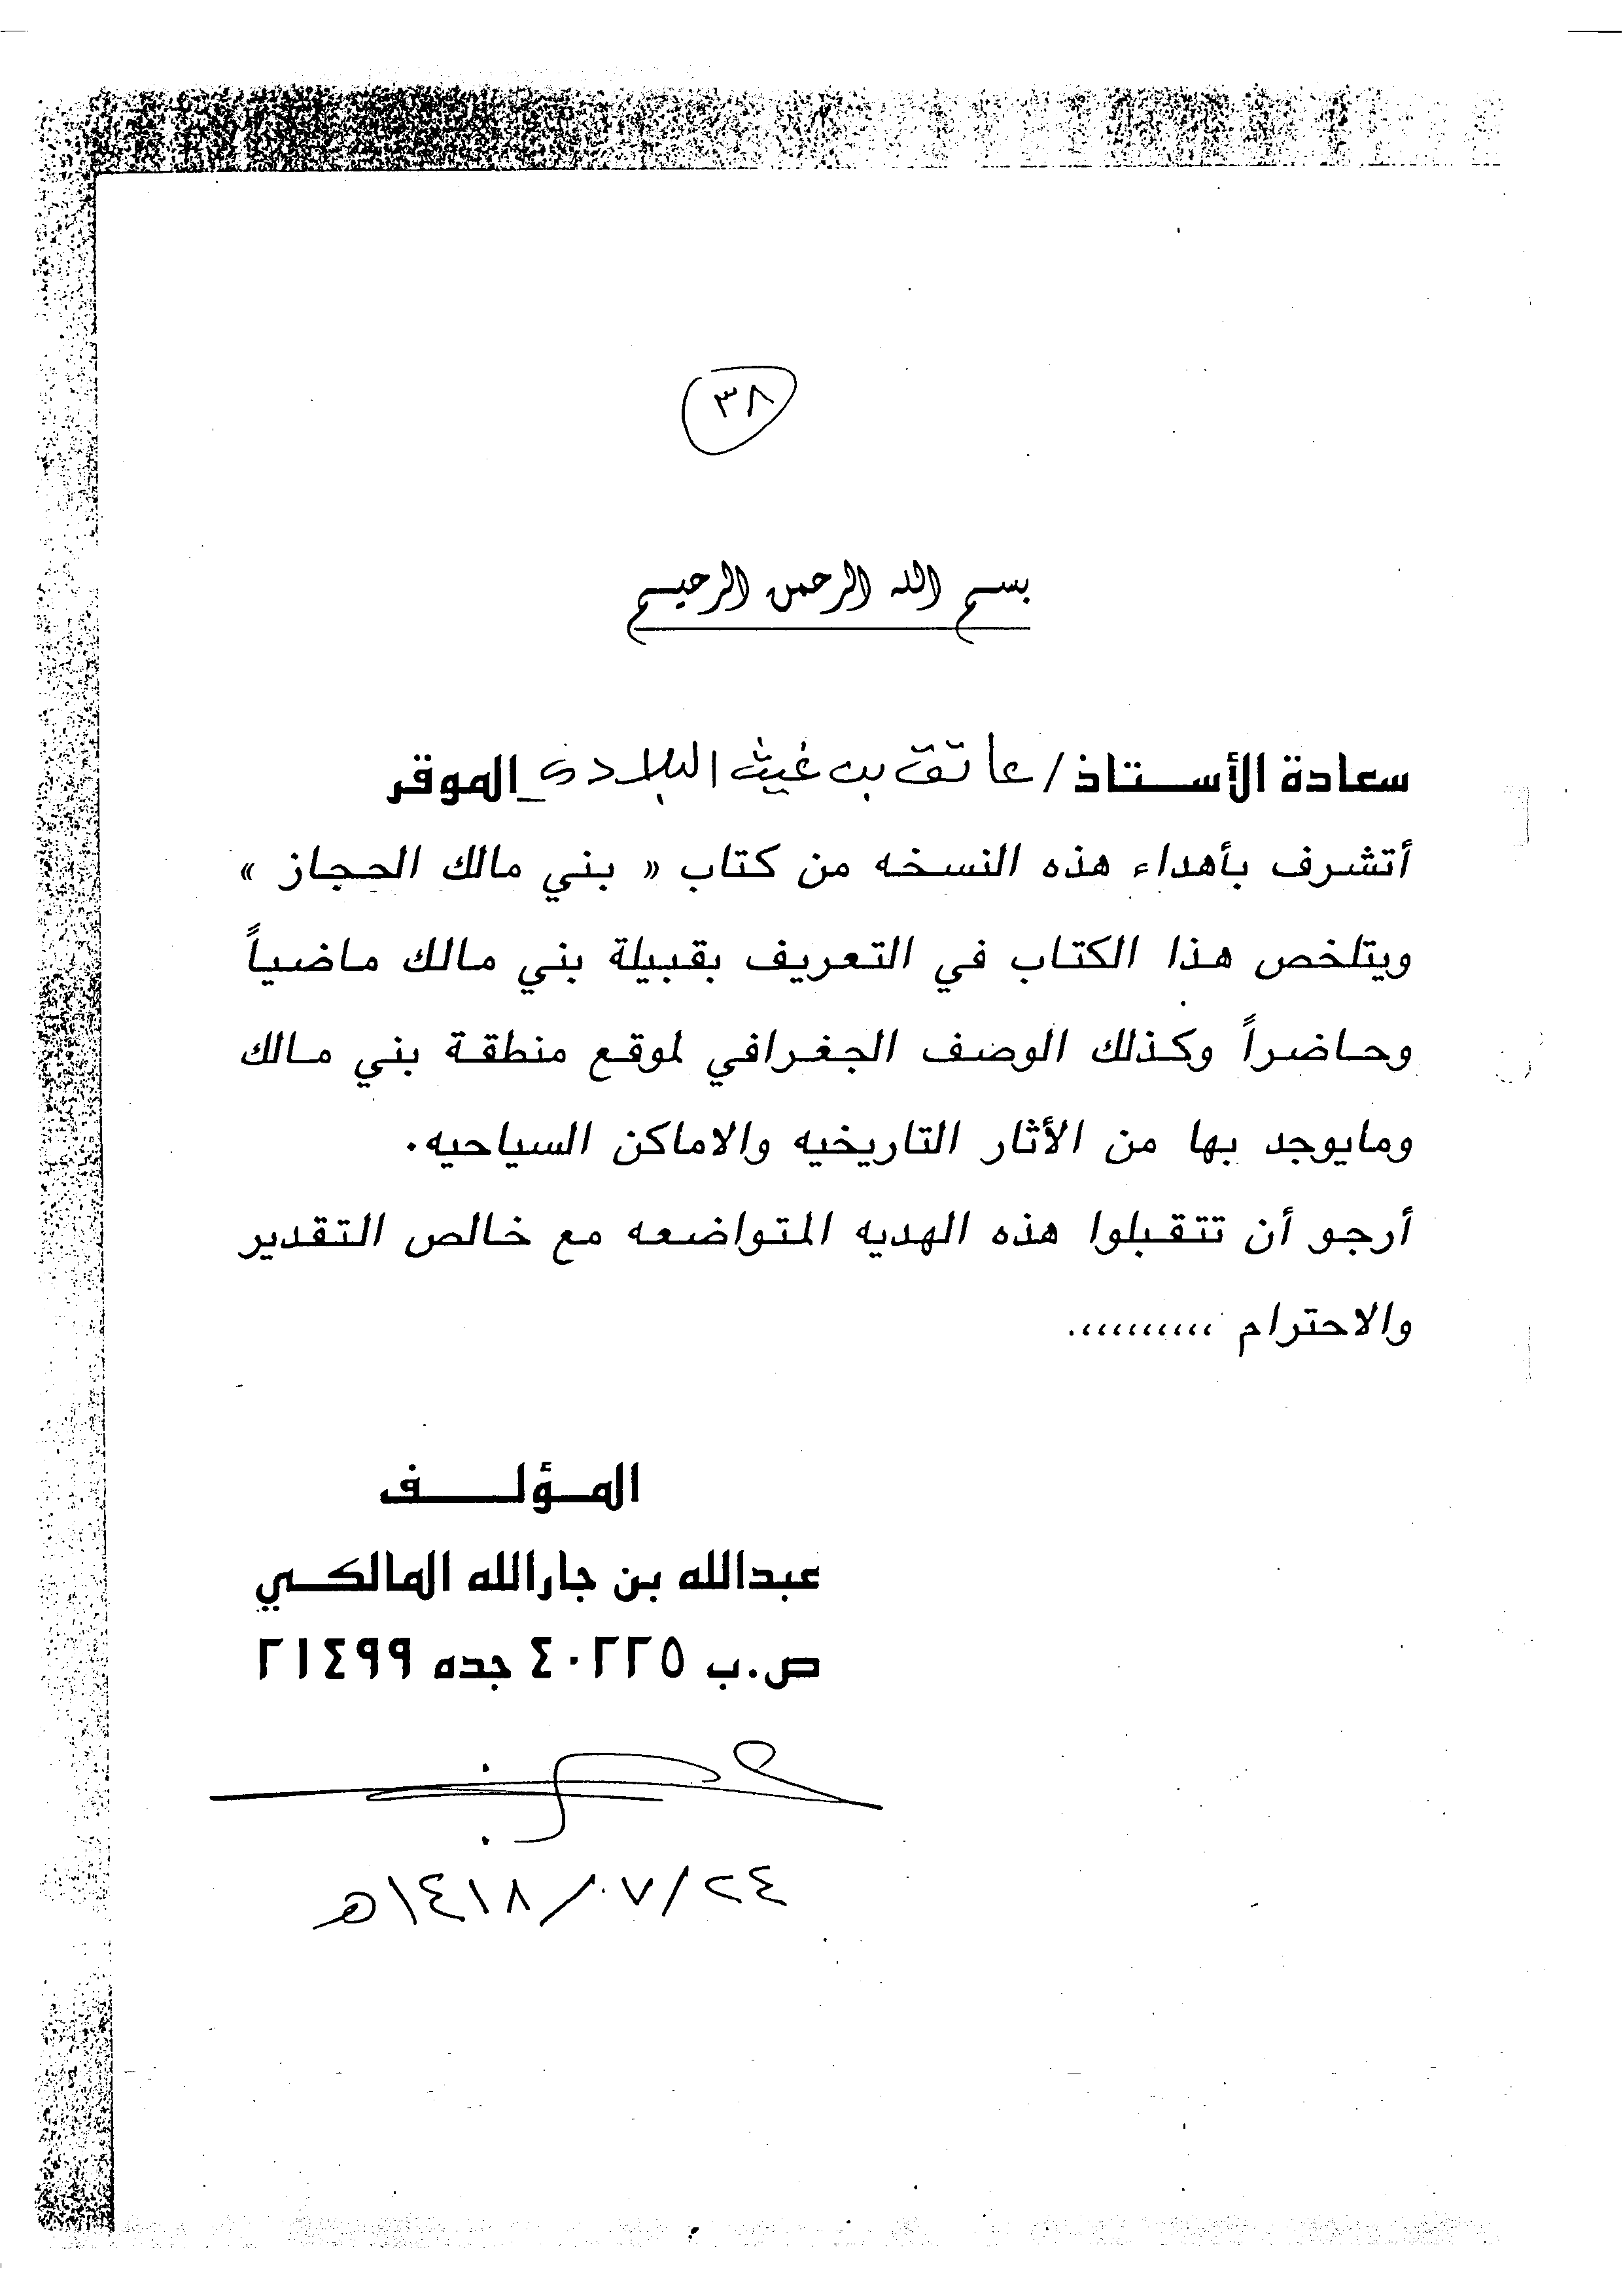 ٣٨
بسم الله الرحمن الرحيم
سعادة الأستاذ / عاتق بن غيث البلادي الموقر
أتشرف بأهداء هذه النسخه من كتاب « بني مالك الحجاز »
ويتلخص هذا الكتاب في التعريف بقبيلة بني مالك ماضياً
وحاضراً وكذلك الوصف الجغرافي لموقع منطقة بني مالك
ومايوجد بها من الأثار التاريخيه والاماكن السياحيه.
أرجو أن تتقبلوا هذه الهديه المتواضعه مع خالص التقدير
والاحترام ،،،،،،،،،.
المؤلف
عبدالله بن جارالله المالكي
ص.ب ٤٠٢٢٥ جده ٢١٤٩٩
٢٤/٠٧/١٤١٨هـ